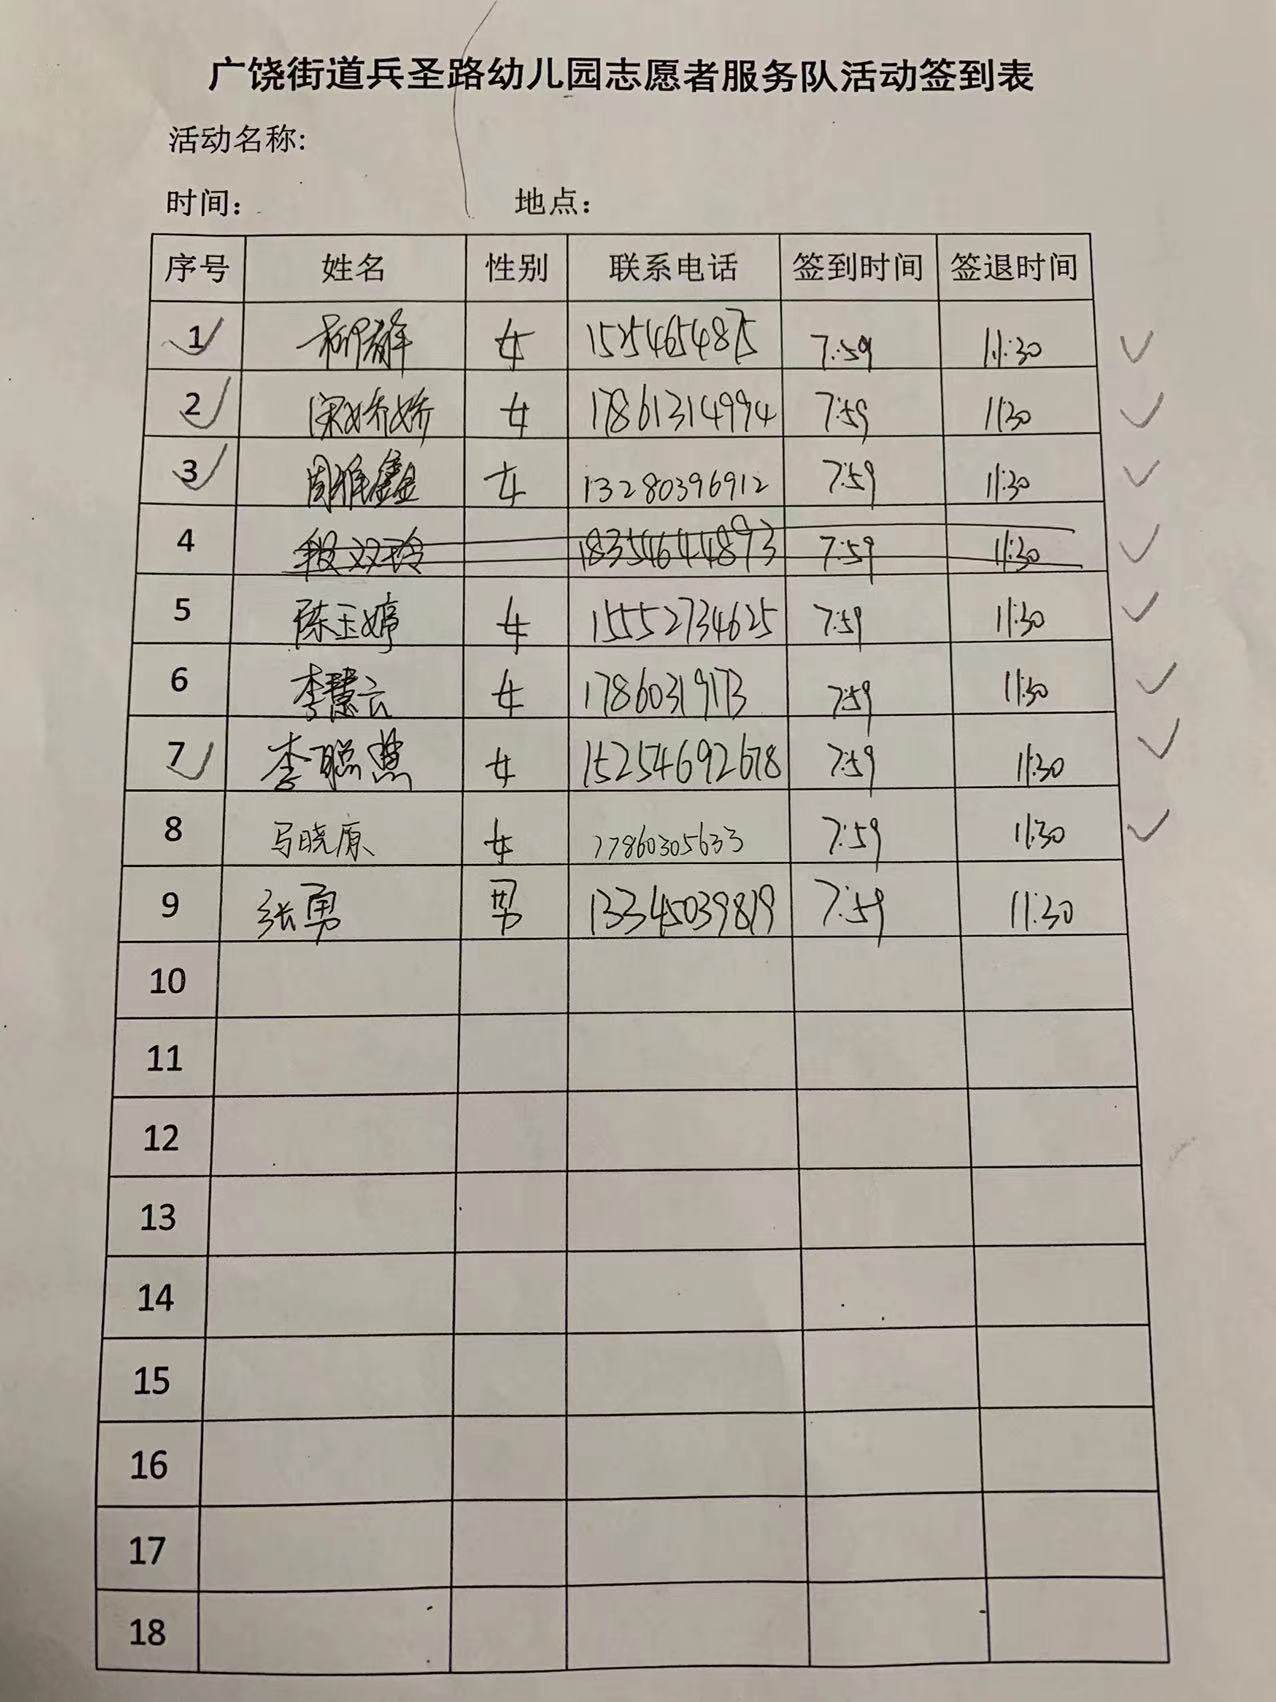 广饶街道兵圣路幼儿园志愿者服务队活动签到表
活动名称:
时间: 地点:
序号 姓名 性别 联系电话 签到时间 签退时间
1 女 7:59 11:30
2 宋娇娇 女 17861314994 7:59 11:30
3 周雅鑫 女 13280396912 7:59 11:30
4 段双玲 18354644893 7:59 11:30
5 陈玉婷 女 15552734625 7:59 11:30
6 李慧云 女 17860319173 7:59 11:30
7 李聪慧 女 15254692678 7:59 11:30
8 马晓原 女 17860305633 7:59 11:30
9 张勇 男 13345039819 7:59 11:30
10
11
12
13
14
15
16
17
18